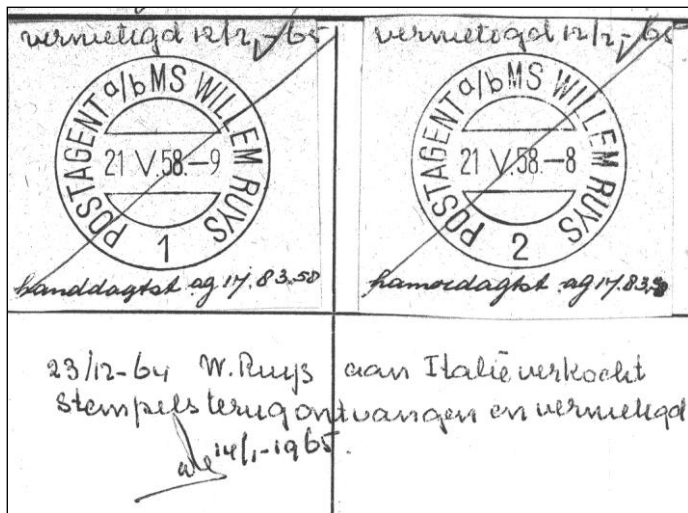 vernietigd 12/2,-65
POSTAGENT a/b MS WILLEM RUYS
21 V.58.-9
1
handdagtst ag 17.83.58
vernietigd 12/2,-65
POSTAGENT a/b MS WILLEM RUYS
21 V.58.-8
2
hamerdagtst ag 17.83.58
23/12-64 W. Ruys aan Italië verkocht
stempels terug ontvangen en vernietigd
14/1-1965.